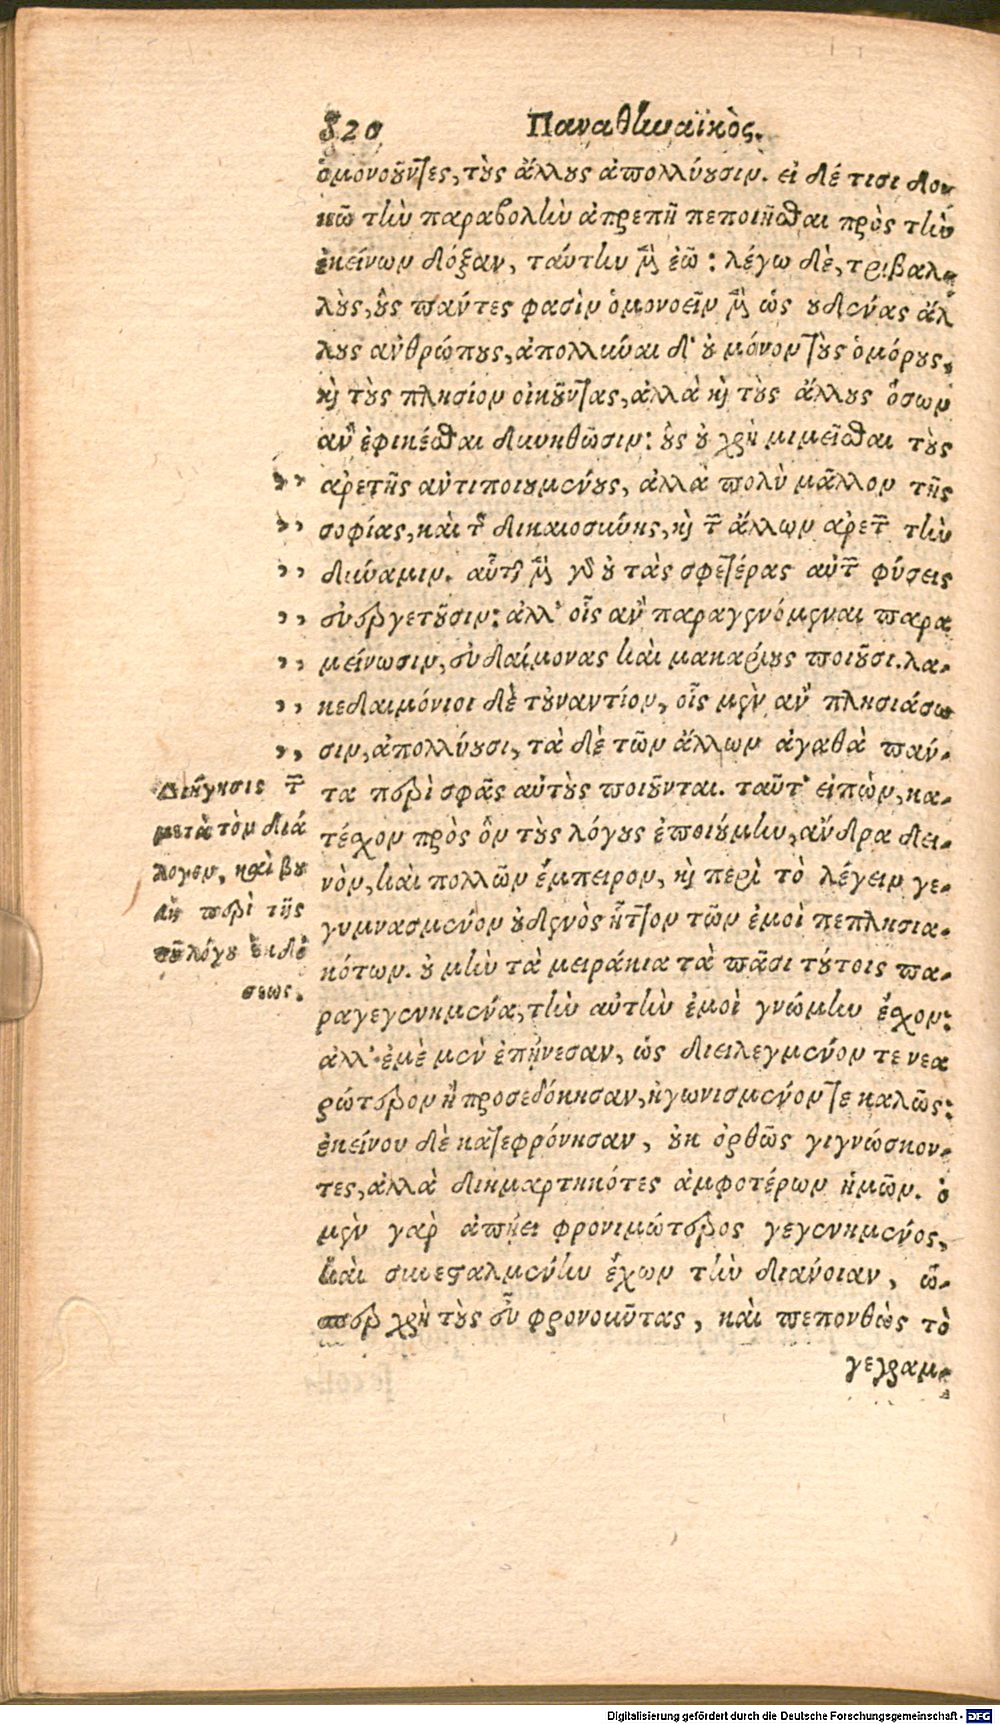 820 Παναθηναϊκὸς.
ὁμονοοῦντες, τοὺς ἄλλους ἀπολλύουσιν. εἰ δέ τισι δο-
κῶ τὴν παραβολὴν ἀπρεπῆ πεποιῆσθαι πρὸς τὴν
ἐκείνων δόξαν, ταύτην μὲν ἐῶ: λέγω δὲ, τριβαλ-
λοὺς, οὓς πάντες φασὶν ὁμονοεῖν μὲν ὡς οὐδένας ἄλ
λους ἀνθρώπους, ἀπολλύναι δ' οὐ μόνον τοὺς ὁμόρους,
καὶ τοὺς πλησίον οἰκοῦντας, ἀλλὰ καὶ τοὺς ἄλλους ὅσων
ἂν ἐφικέσθαι δυνηθῶσιν: οὓς οὐ χρὴ μιμεῖσθαι τοὺς
,, ἀρετῆς ἀντιποιουμένους, ἀλλὰ πολὺ μᾶλλον τῆς
,, σοφίας, καὶ τῆς δικαιοσύνης, καὶ τῶν ἄλλων ἀρετῶν τὴν
,, δύναμιν. αὗται μὲν γὰρ οὐ τὰς σφετέρας αὐτῶν φύσεις
,, εὐεργετοῦσιν: ἀλλ' οἷς ἂν παραγενόμεναι παρα
,, μείνωσιν, εὐδαίμονας καὶ μακαρίους ποιοῦσι. λα-
,, κεδαιμόνιοι δὲ τοὐναντίον, οἷς μὲν ἂν πλησιάσω
,, σιν, ἀπολλύουσι, τὰ δὲ τῶν ἄλλων ἀγαθὰ πάν-
τα περὶ σφᾶς αὐτοὺς ποιοῦνται. ταῦτ' εἰπὼν, κα-
τέσχον πρὸς ὃν τοὺς λόγους ἐποιούμην, ἄνδρα δει-
νὸν, καὶ πολλῶν ἔμπειρον, καὶ περὶ τὸ λέγειν γε-
γυμνασμένον οὐδενὸς ἧττον τῶν ἐμοὶ πεπλησια-
κότων. οὐ μὴν τὰ μειράκια τὰ πᾶσι τούτοις πα-
ραγεγενημένα, τὴν αὐτὴν ἐμοὶ γνώμην ἔσχον:
ἀλλ' ἐμὲ μὲν ἐπῄνεσαν, ὡς διειλεγμένον τε νεα
ρώτερον ἢ προσεδόκησαν, ἠγωνισμένον τε καλῶς:
ἐκείνου δὲ κατεφρόνησαν, οὐκ ὀρθῶς γιγνώσκον-
τες, ἀλλὰ διημαρτηκότες ἀμφοτέρων ἡμῶν. ὁ
μὲν γὰρ ἀπῄει φρονιμώτερος γεγενημένος,
καὶ συνεσταλμένην ἔχων τὴν διάνοιαν, ὥ-
περ χρὴ τοὺς εὖ φρονοῦντας, καὶ πεπονθὼς τὸ
γεγραμ-
Διήγησις τῶν
μετὰ τὸν διά
λογον, καὶ βου
λὴ περὶ τῆς
τοῦ λόγου ἐκδό
σεως.
Digitalisierung gefördert durch die Deutsche Forschungsgemeinschaft - DFG